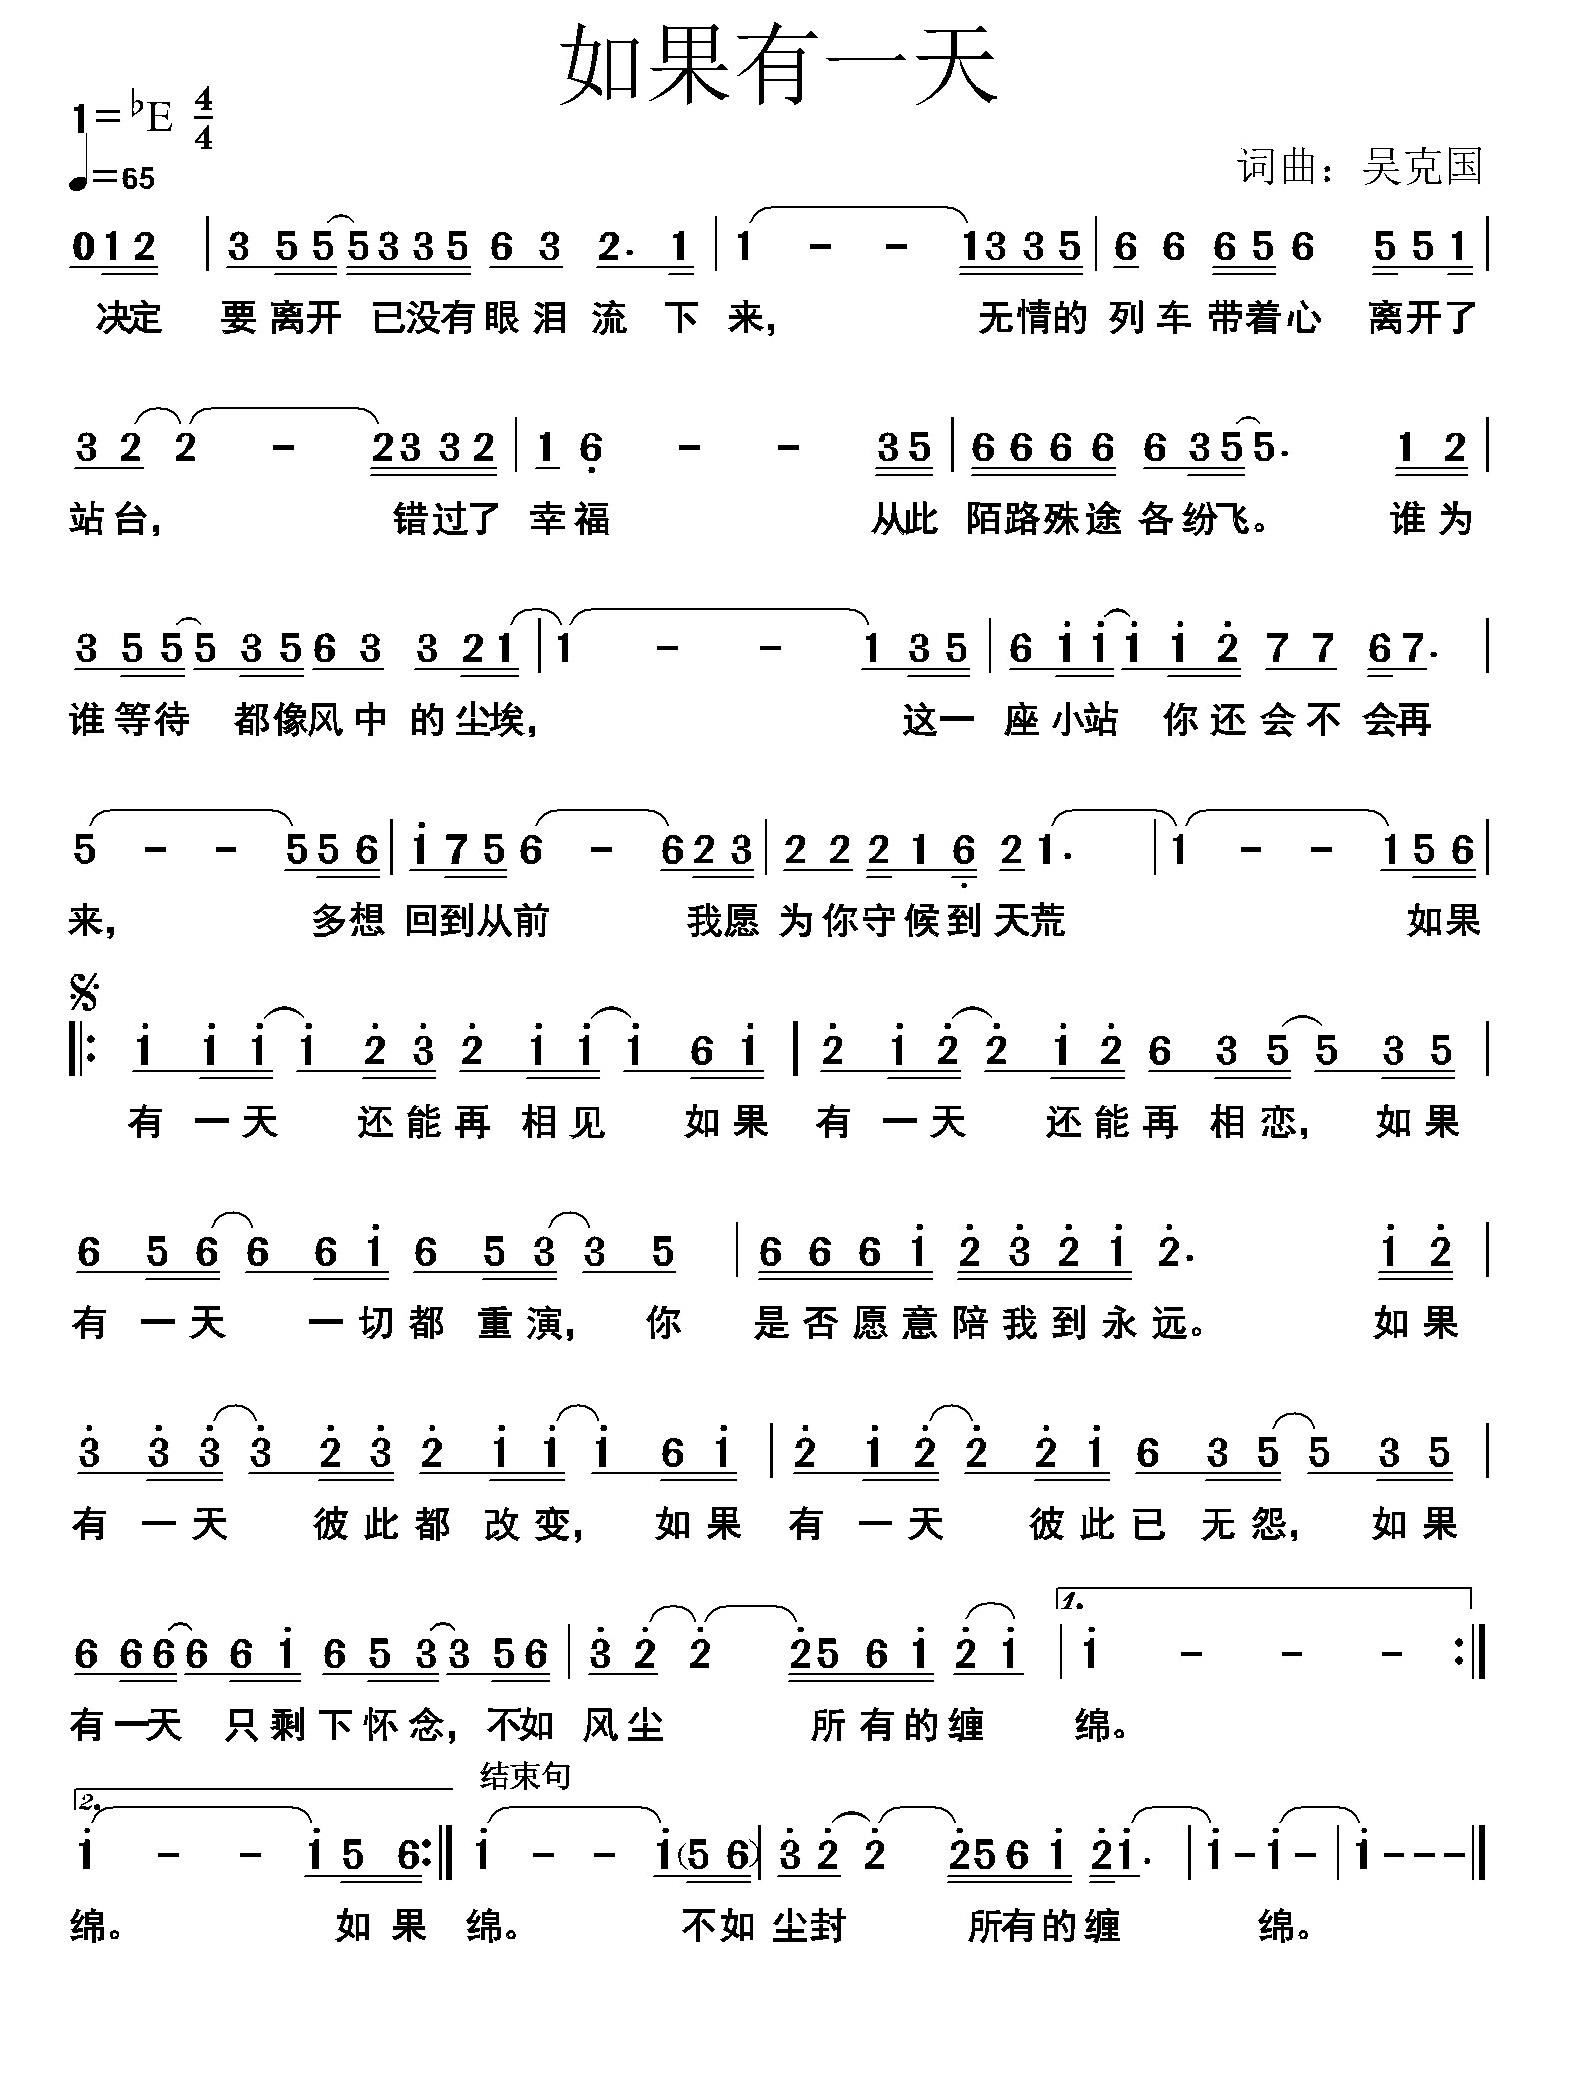 如果有一天
1=♭E 4/4
♩=65
词曲：吴克国
012 | 3 55 5335 6 3 2. 1 | 1 – – 1335 | 6 6 6 5 6 5 5 1 |
决定 要离开 已没有眼泪 流 下 来， 无情的 列车 带着心 离开了
3 2 2 – 23 3 2 | 1 6̣ – – 3 5 | 6 6 6 6 6 3 5 5. 1 2 |
站台， 错过了 幸福 从此 陌路殊途 各纷飞。 谁为
3 5 5 5 3 5 6 3 3 2 1 | 1 – – 1 3 5 | 6 i i i i 2̇ 7 7 6 7. |
谁等待 都像风中 的尘埃， 这一 座小站 你还会不 会再
5 – – 5 5 6 | i 7 5 6 – 6 2 3 | 2 2 2 1 6̣ 2 1. | 1 – – 1 5 6 |
来， 多想 回到从前 我愿 为你守候到 天荒 如果
𝄋
|: i i i i 2̇ 3̇ 2̇ i i i 6 i | 2̇ i 2̇ 2̇ i 2̇ 6 3 5 5 3 5 |
有一天 还能再相见 如果 有一天 还能再相恋， 如果
6 5 6 6 6 i 6 5 3 3 5 | 6 6 6 i 2̇ 3̇ 2̇ i 2̇. i 2̇ |
有一天 一切都重演， 你 是否愿意陪我到永远。 如果
3̇ 3̇ 3̇ 3̇ 2̇ 3̇ 2̇ i i i 6 i | 2̇ i 2̇ 2̇ 2̇ i 6 3 5 5 3 5 |
有一天 彼此都改变， 如果 有一天 彼此已无怨， 如果
1.
6 6 6 6 6 i 6 5 3 3 5 6 | 3̇ 2̇ 2̇ 2̇ 5 6 i 2̇ i | i – – – :|
有一天 只剩下怀念， 不如 风尘 所有的缠 绵。
2. 结束句
i – – i 5 6 :| i – – i (5 6) | 3̇ 2̇ 2̇ 2̇ 5 6 i 2̇ i. | i – i – | i – – – |
绵。 如果 绵。 不如 尘封 所有的缠 绵。